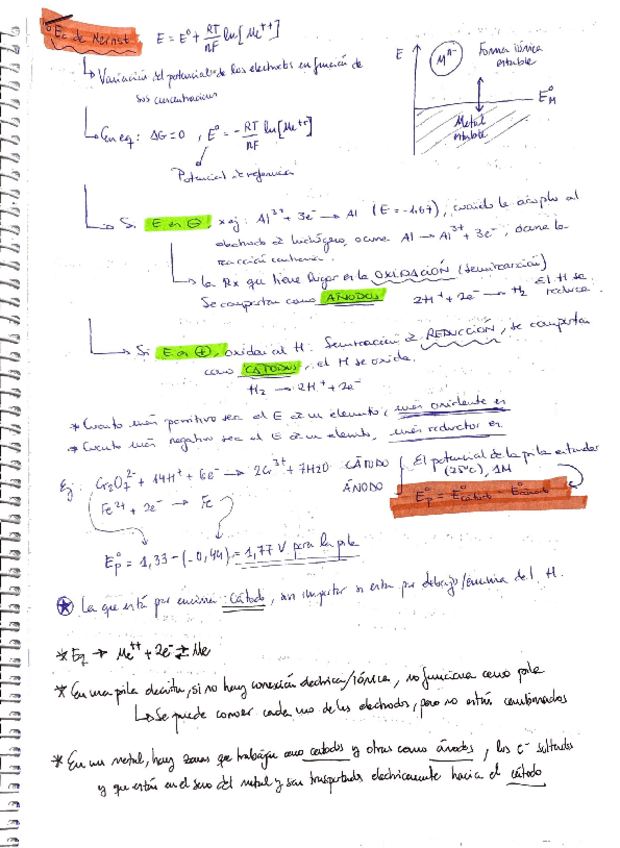 Ec de Nernst E = E° + RT/nF ln[Me++]
E
M^n-
Forma iónica estable
E°M
Metal estable
↳ Variación del potencial de los electrodos en función de
sus concentraciones
↳ En eq: ΔG = 0, E° = - RT/nF ln[Me++]
Potencial de referencia
↳ Si E es ⊖, x ej: Al3+ + 3e- → Al (E = -1,67), cuando le acoplo al
electrodo de hidrógeno, ocurre Al → Al3+ + 3e-, ocurre la
reacción contraria.
↳ La Rx que tiene lugar es la OXIDACIÓN (semirreacción)
Se comportan como ÁNODOS 2H+ + 2e- → H2 El H se
reduce.
↳ Si E es ⊕, oxidan al H. Semirreación de REDUCCIÓN, se comportan
como CÁTODOS, el H se oxida.
H2 → 2H+ + 2e-
* Cuanto más positivo sea el E de un elemento, más oxidante es
* Cuanto más negativo sea el E de un elemento, más reductor es
Ej: Cr2O7 2- + 14H+ + 6e- → 2Cr3+ + 7H2O CÁTODO
Fe2+ + 2e- → Fe ÁNODO
El potencial de la pila estándar
(25°C), 1M
E°p = E°cátodo - E°ánodo
E°p = 1,33 - (-0,44) = 1,77 V para la pila
La que está por encima cátodo, sin importar si esta por debajo/encima del H.
* Eq → Me++ + 2e- ⇄ Me
* En una pila decirta, si no hay conexión electrica/iónica, no funciona como pila
↳ Se puede conocer cada uno de los electrodos, pero no están combinados
* En un metal, hay zonas que trabajan como catodos y otras como ánodos, los e- soltados
y que están en el seno del metal y son trasportados electricamente hacia el cátodo